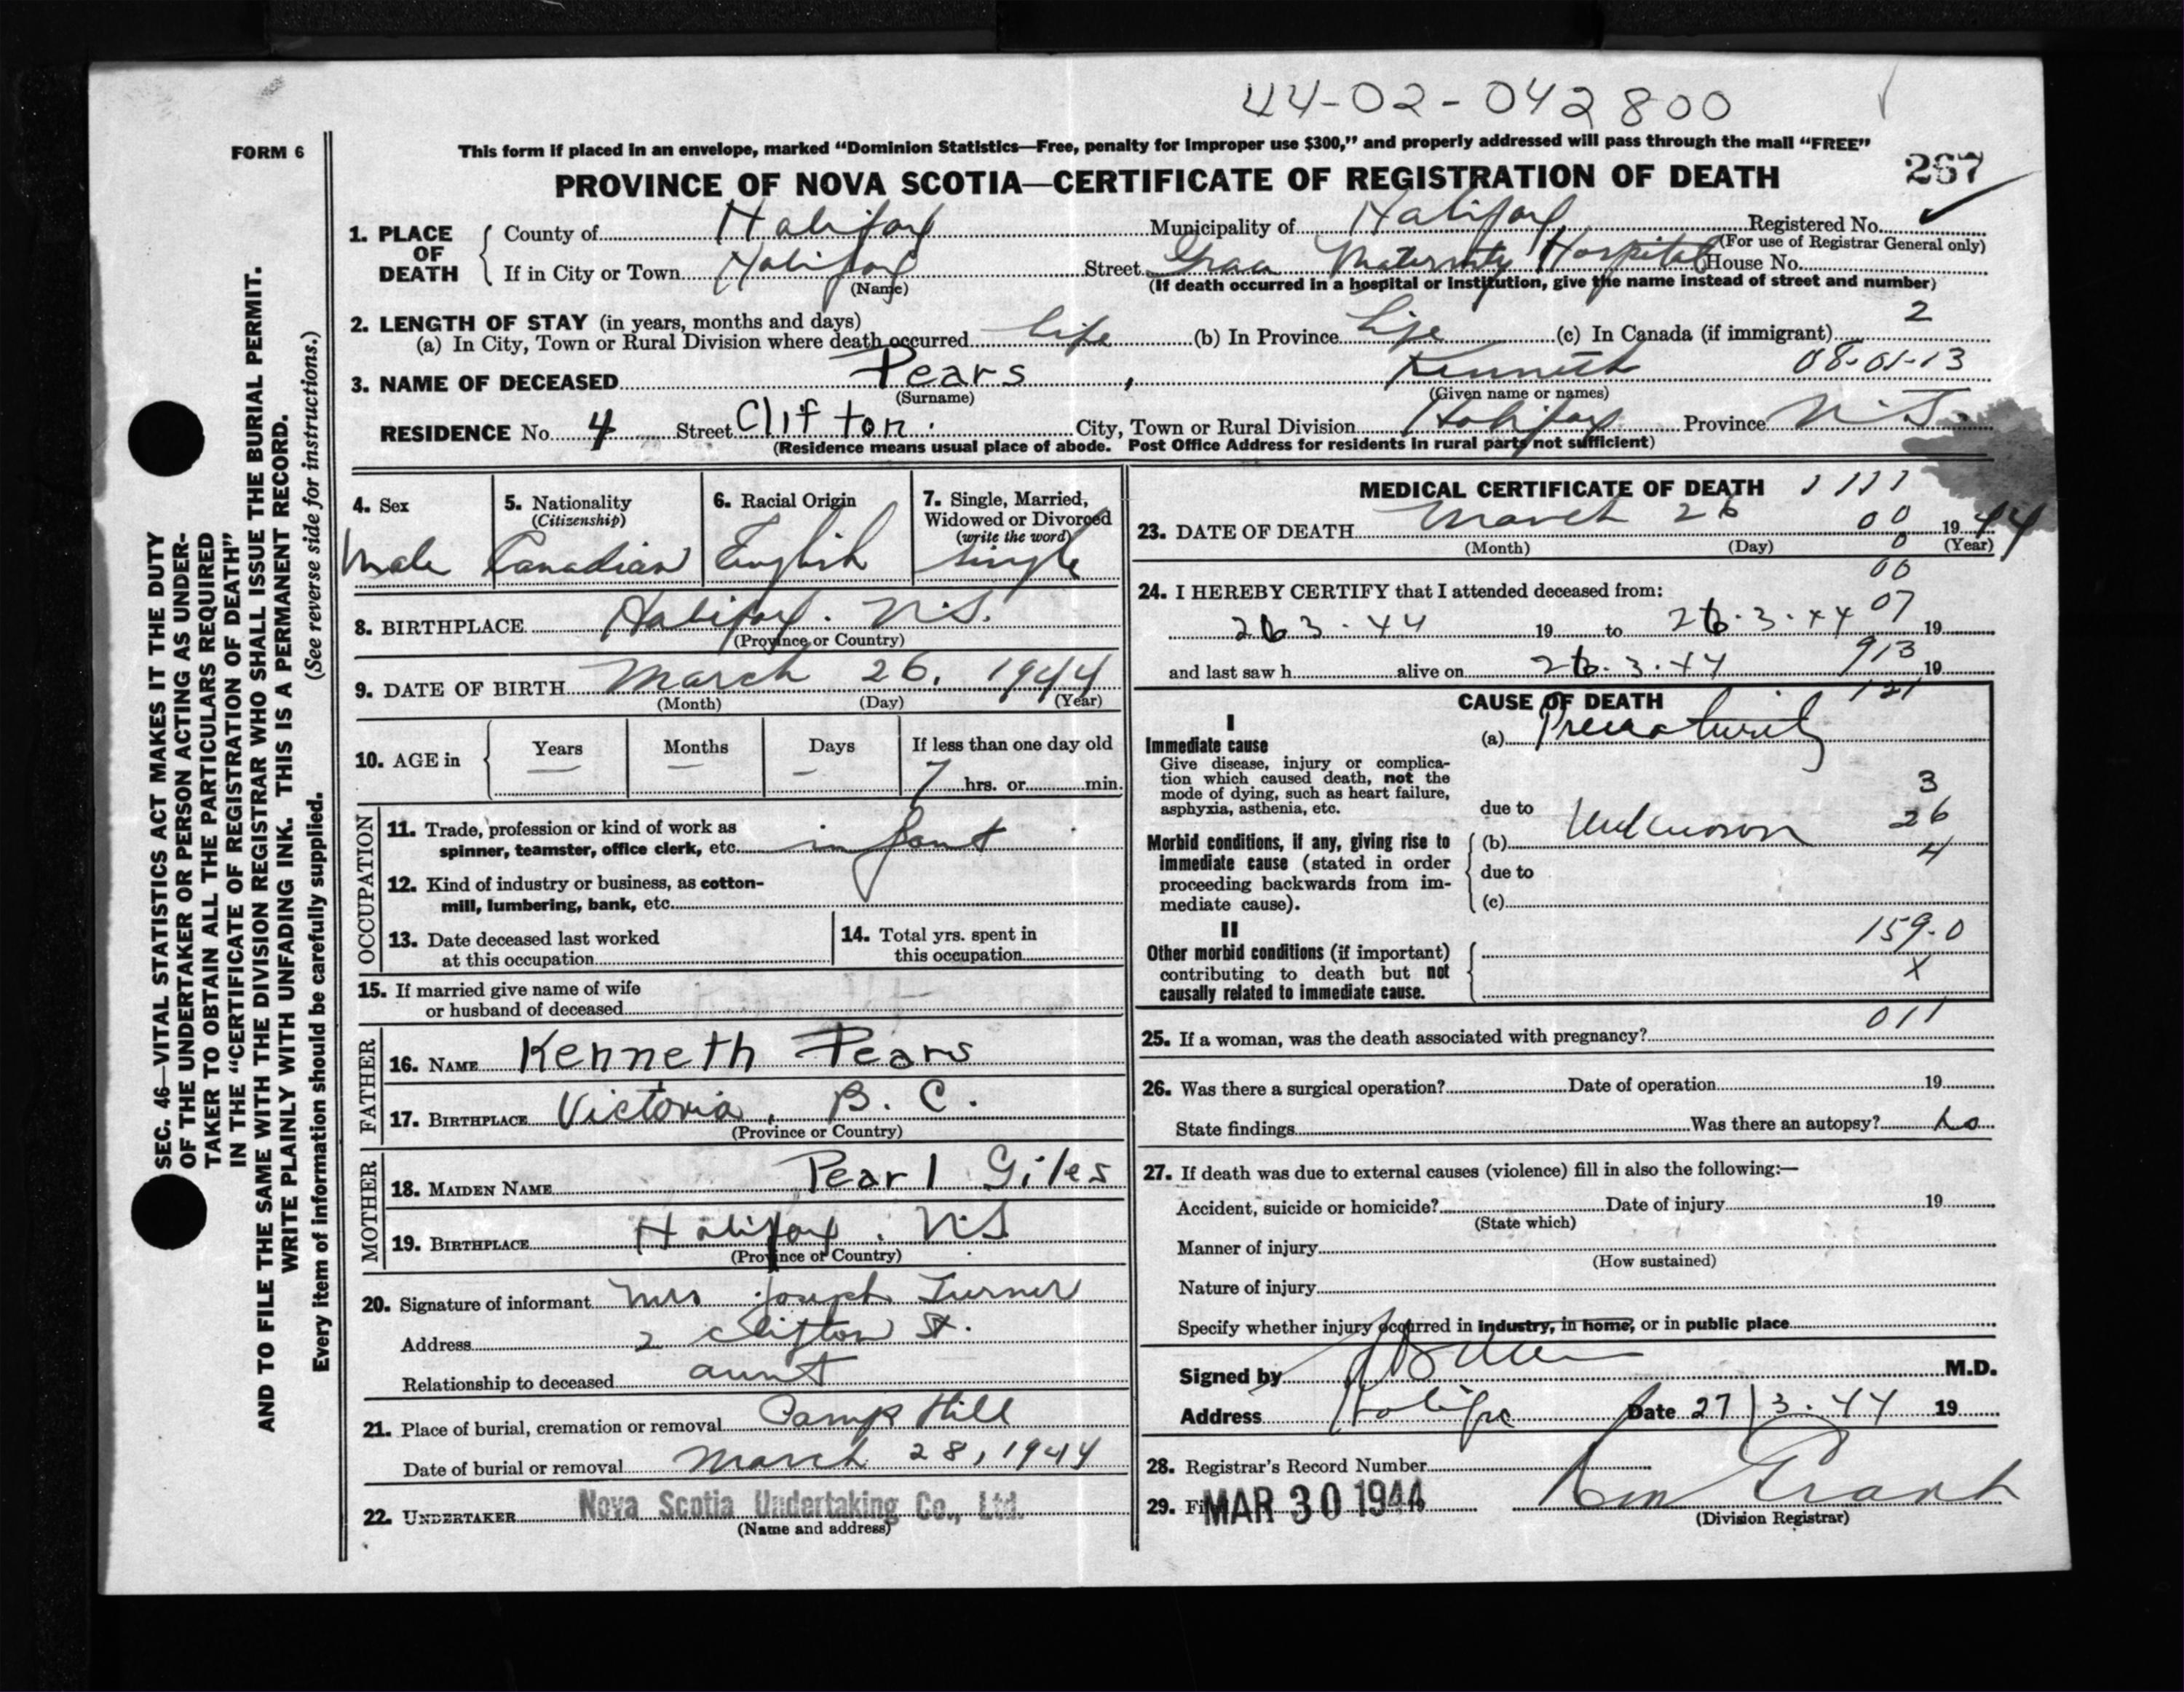 44-02-042800
FORM 6
This form if placed in an envelope, marked “Dominion Statistics—Free, penalty for improper use $300,” and properly addressed will pass through the mail “FREE”
267
PROVINCE OF NOVA SCOTIA—CERTIFICATE OF REGISTRATION OF DEATH
1. PLACE OF DEATH
County of Halifax Municipality of Halifax Registered No.
(For use of Registrar General only)
If in City or Town Halifax Street Grace Maternity Hospital House No.
(Name) (If death occurred in a hospital or institution, give the name instead of street and number)
2. LENGTH OF STAY (in years, months and days)
(a) In City, Town or Rural Division where death occurred life (b) In Province Life (c) In Canada (if immigrant) 2
3. NAME OF DECEASED Pears, Kenneth 08-01-13
(Surname) (Given name or names)
RESIDENCE No. 4 Street Clifton. City, Town or Rural Division Halifax Province N.S.
(Residence means usual place of abode. Post Office Address for residents in rural parts not sufficient)
SEC. 46—VITAL STATISTICS ACT MAKES IT THE DUTY
OF THE UNDERTAKER OR PERSON ACTING AS UNDER-
TAKER TO OBTAIN ALL THE PARTICULARS REQUIRED
IN THE “CERTIFICATE OF REGISTRATION OF DEATH”
AND TO FILE THE SAME WITH THE DIVISION REGISTRAR WHO SHALL ISSUE THE BURIAL PERMIT.
WRITE PLAINLY WITH UNFADING INK. THIS IS A PERMANENT RECORD.
Every item of information should be carefully supplied. (See reverse side for instructions.)
4. Sex
Male
5. Nationality
(Citizenship)
Canadian
6. Racial Origin
English
7. Single, Married,
Widowed or Divorced
(write the word)
single
8. BIRTHPLACE Halifax. N.S.
(Province or Country)
9. DATE OF BIRTH March 26, 1944
(Month) (Day) (Year)
10. AGE in
Years Months Days If less than one day old
— — — 7 hrs. or min.
OCCUPATION
11. Trade, profession or kind of work as
spinner, teamster, office clerk, etc. infant
12. Kind of industry or business, as cotton-
mill, lumbering, bank, etc.
13. Date deceased last worked
at this occupation
14. Total yrs. spent in
this occupation
15. If married give name of wife
or husband of deceased
FATHER
16. NAME Kenneth Pears
17. BIRTHPLACE Victoria, B. C.
(Province or Country)
MOTHER
18. MAIDEN NAME Pearl Giles
19. BIRTHPLACE Halifax. N.S
(Province or Country)
20. Signature of informant Mrs Joseph Turner
Address 2 Clifton St.
Relationship to deceased aunt
21. Place of burial, cremation or removal Camp Hill
Date of burial or removal March 28, 1944
22. UNDERTAKER Nova Scotia Undertaking Co., Ltd.
(Name and address)
MEDICAL CERTIFICATE OF DEATH 1111
23. DATE OF DEATH March 26 00 1944
(Month) (Day) 0 (Year)
00
24. I HEREBY CERTIFY that I attended deceased from:
26 3.44 19 to 26.3.44 07 19
and last saw h alive on 26.3.44 913 19
121
CAUSE OF DEATH
I
Immediate cause
Give disease, injury or complica-
tion which caused death, not the
mode of dying, such as heart failure,
asphyxia, asthenia, etc.
(a) Prematurity
3
due to
Morbid conditions, if any, giving rise to
immediate cause (stated in order
proceeding backwards from im-
mediate cause).
26
(b) Unknown
4
due to
(c)
II
Other morbid conditions (if important)
contributing to death but not
causally related to immediate cause.
159.0
X
011
25. If a woman, was the death associated with pregnancy?
26. Was there a surgical operation? Date of operation 19
State findings Was there an autopsy? No
27. If death was due to external causes (violence) fill in also the following:—
Accident, suicide or homicide? Date of injury 19
(State which)
Manner of injury
(How sustained)
Nature of injury
Specify whether injury occurred in industry, in home, or in public place
Signed by M.D.
Address Halifax Date 27/3.44 19
28. Registrar's Record Number
29. MAR 30 1944 Grant
(Division Registrar)